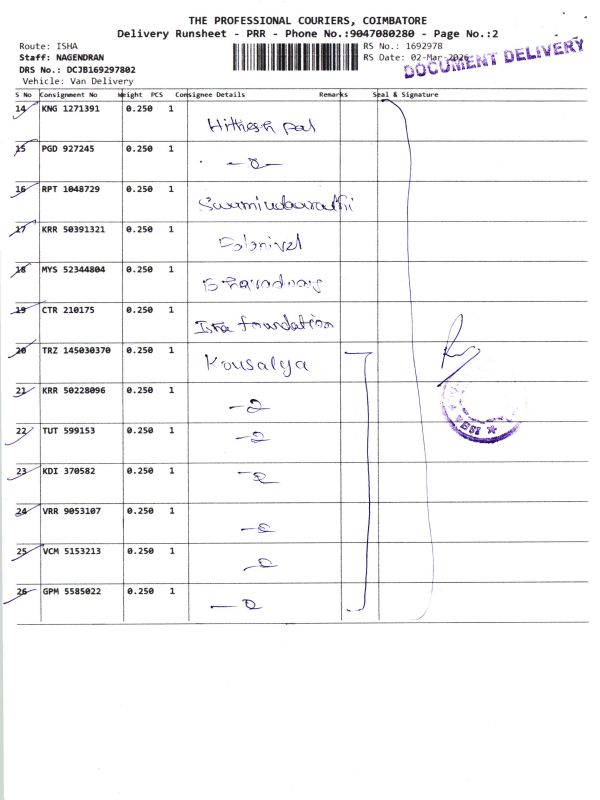 THE PROFESSIONAL COURIERS, COIMBATORE
Delivery Runsheet - PRR - Phone No.:9047080280 - Page No.:2
Route: ISHA
RS No.: 1692978
Staff: NAGENDRAN
RS Date: 02-Mar-2026
DOCUMENT DELIVERY
DRS No.: DCJB169297802
Vehicle: Van Delivery
S No Consignment No Weight PCS Consignee Details Remarks Seal & Signature
14 KNG 1271391 0.250 1
Hithesh pal
15 PGD 927245 0.250 1
16 RPT 1048729 0.250 1
17 KRR 50391321 0.250 1
18 MYS 52344804 0.250 1
19 CTR 210175 0.250 1
Isha foundation
20 TRZ 145030370 0.250 1
Kousalya
21 KRR 50228096 0.250 1
22 TUT 599153 0.250 1
23 KDI 370582 0.250 1
24 VRR 9053107 0.250 1
25 VCM 5153213 0.250 1
26 GPM 5585022 0.250 1